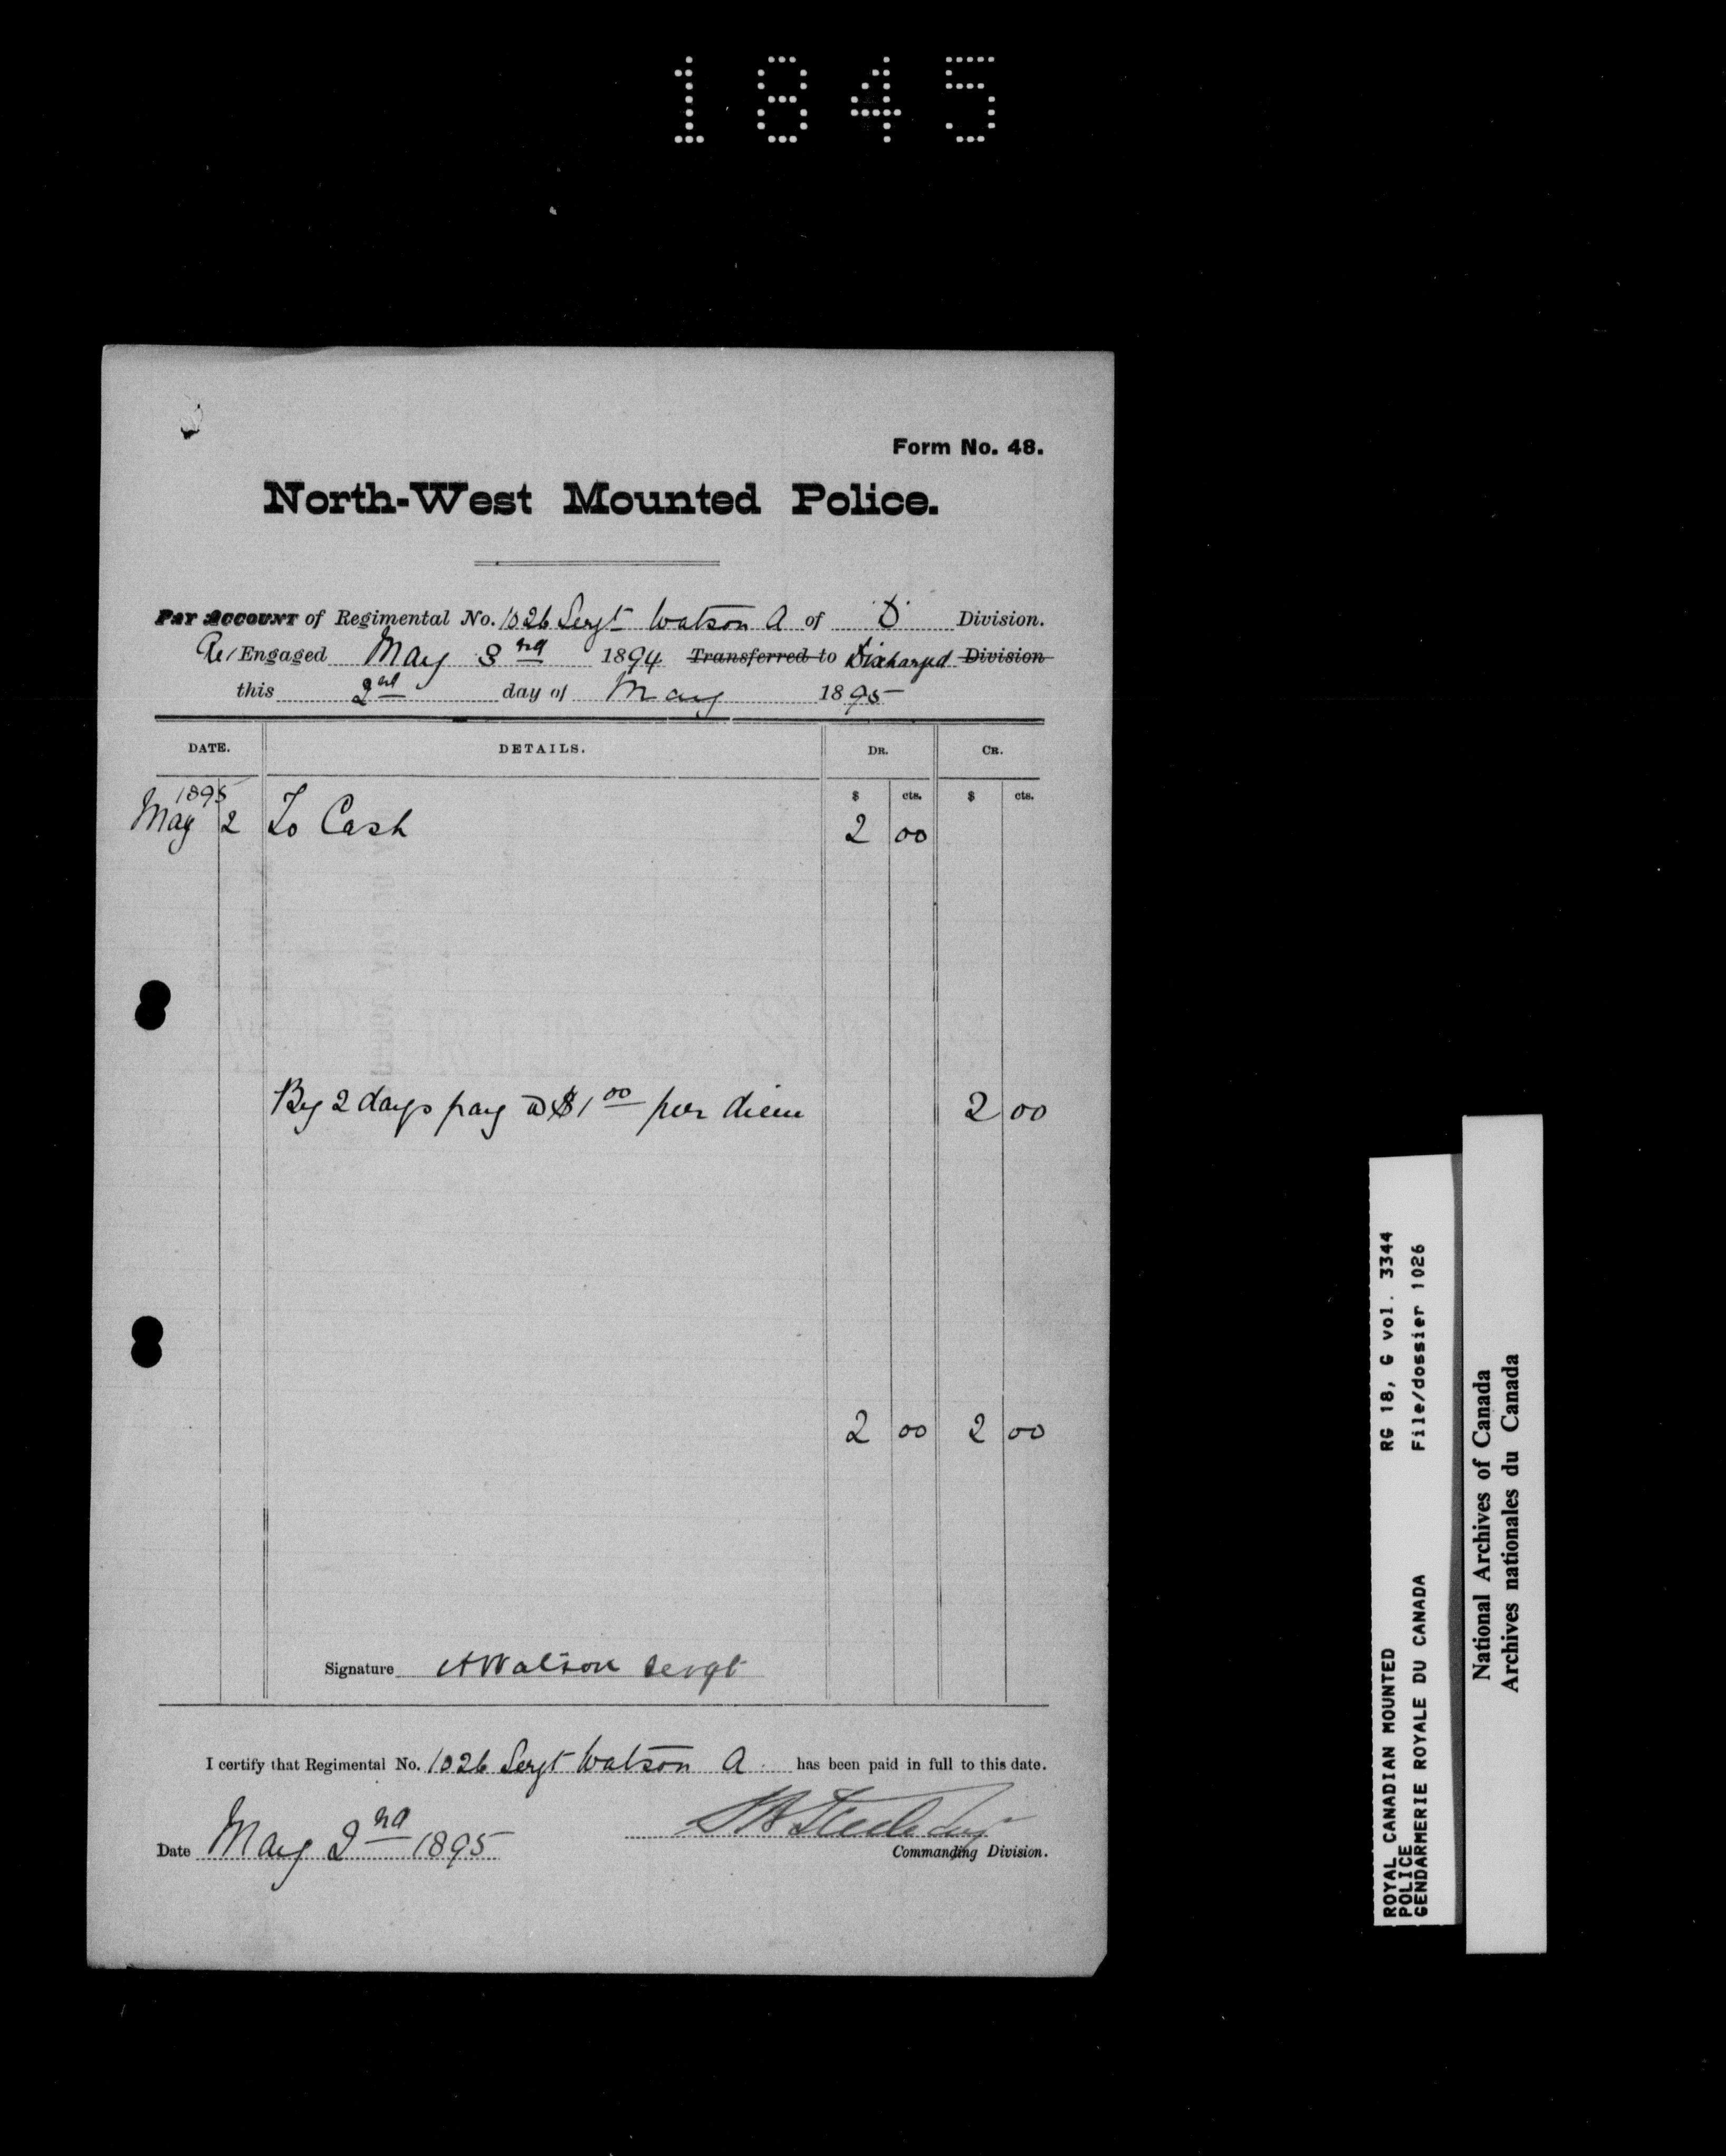 1845
Form No. 48.
North-West Mounted Police.
Pay Account of Regimental No. 1026 Sergt Watson A of "D" Division.
Re/Engaged May 3rd 1894 Transferred to Discharged Division
this 2nd day of May 1895
DATE. DETAILS. DR. CR.
1895 $ cts. $ cts.
May 2 To Cash 2 00
By 2 days pay @ $1 00 per diem 2 00
2 00 2 00
Signature A Watson Sergt
I certify that Regimental No. 1026 Sergt Watson A. has been paid in full to this date.
Date May 2nd 1895 S B Steele Supt
Commanding Division.
ROYAL CANADIAN MOUNTED RG 18, G vol. 3344
POLICE
GENDARMERIE ROYALE DU CANADA File/dossier 1026
National Archives of Canada
Archives nationales du Canada